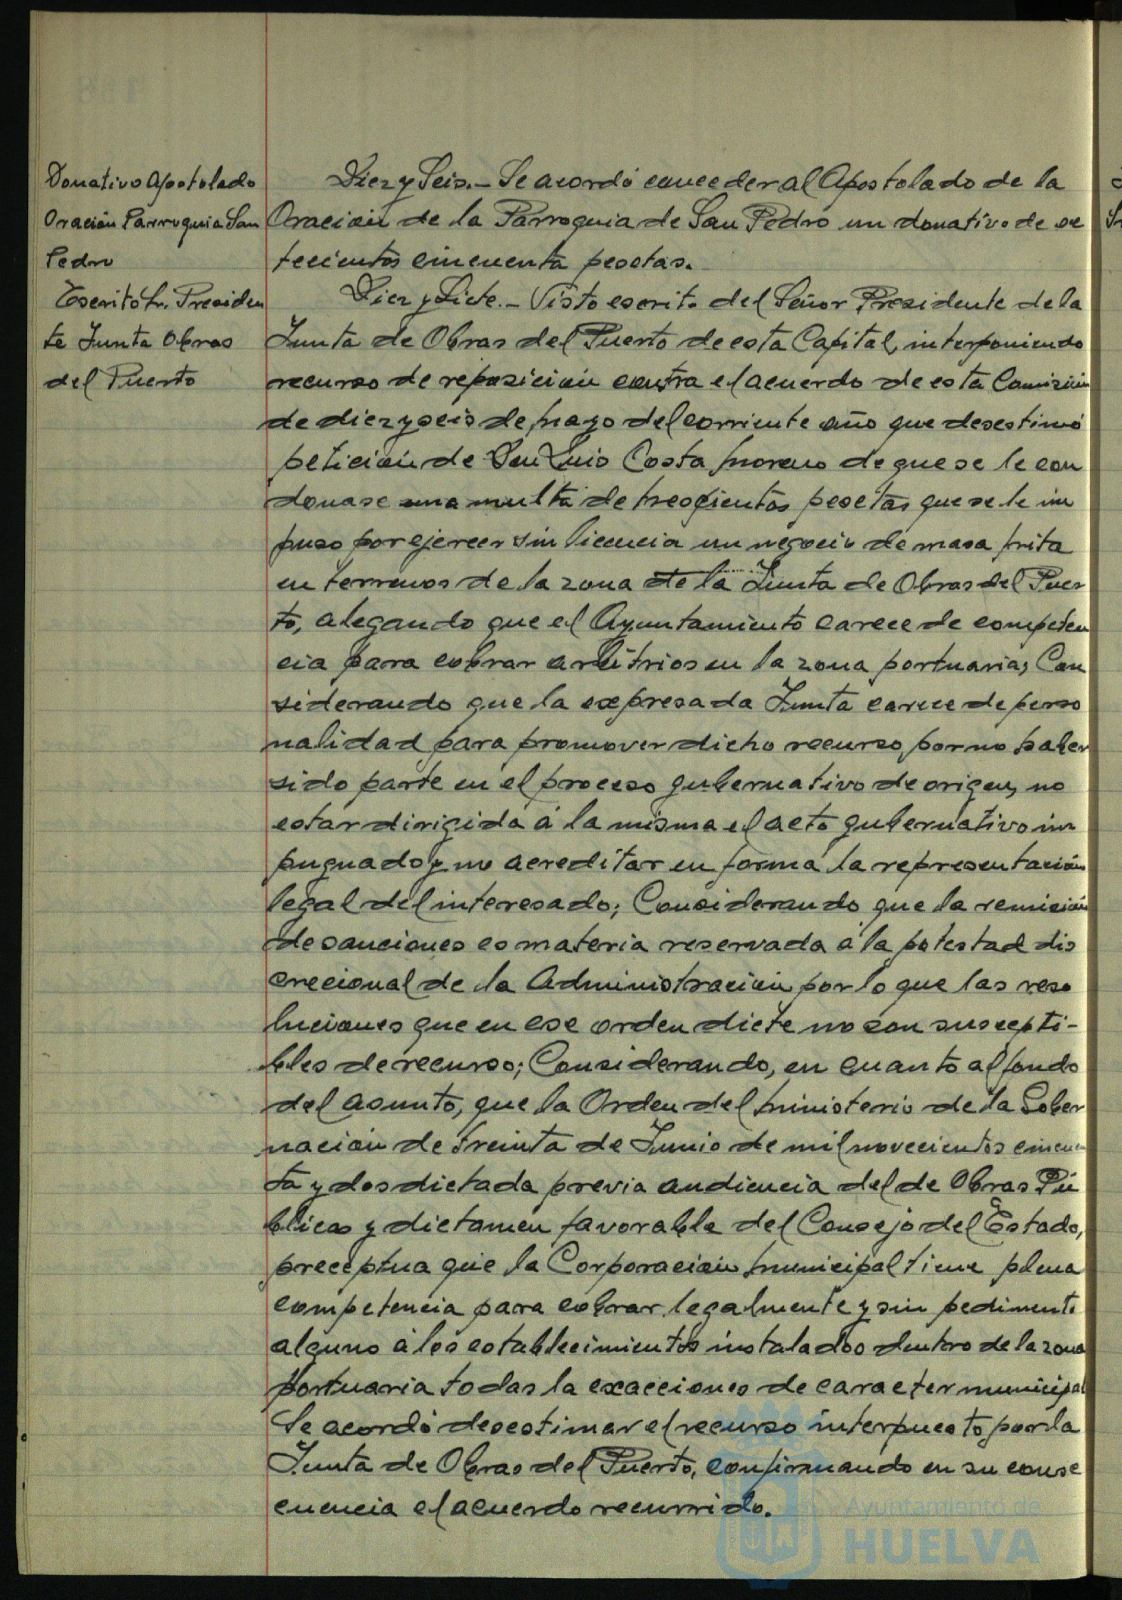 Donativo Apostolado
Oración Parroquia San
Pedro
Diez y Seis.- Se acordó conceder al Apostolado de la
Oración de la Parroquia de San Pedro un donativo de se
tecientos cincuenta pesetas.
Escrito Sr. Presiden
te Junta Obras
del Puerto
Diez y Siete.- Visto escrito del Señor Presidente de la
Junta de Obras del Puerto de esta Capital, interponiendo
recurso de reposición contra el acuerdo de esta Comisión
de diez y seis de Mayo del corriente año que desestimó
petición de Don Luis Costa Moreno de que se le con
donase una multa de trescientas pesetas que se le im
puso por ejercer sin licencia un negocio de masa frita
en terrenos de la zona de la Junta de Obras del Puer
to, alegando que el Ayuntamiento carece de competen
cia para cobrar arbitrios en la zona portuaria; Con
siderando que la expresada Junta carece de perso
nalidad para promover dicho recurso por no haber
sido parte en el proceso gubernativo de origen, no
estar dirigida á la misma el acto gubernativo im
pugnado y no acreditar en forma la representación
legal del interesado; Considerando que la remisión
de sanciones es materia reservada á la potestad dis
crecional de la Administración por lo que las reso
luciones que en ese orden dicte no son suscepti-
bles de recurso; Considerando, en cuanto al fondo
del asunto, que la Orden del Ministerio de la Gober
nación de treinta de Junio de mil novecientos cincuen
ta y dos dictada previa audiencia del de Obras Pú
blicas y dictamen favorable del Consejo del Estado,
preceptua que la Corporación Municipal tiene plena
competencia para cobrar legalmente y sin pedimento
alguno á los establecimientos instalados dentro de la zona
portuaria todas la exacciones de caracter municipal
Se acordó desestimar el recurso interpuesto por la
Junta de Obras del Puerto, confirmando en su conse
cuencia el acuerdo recurrido.
Ayuntamiento de
HUELVA